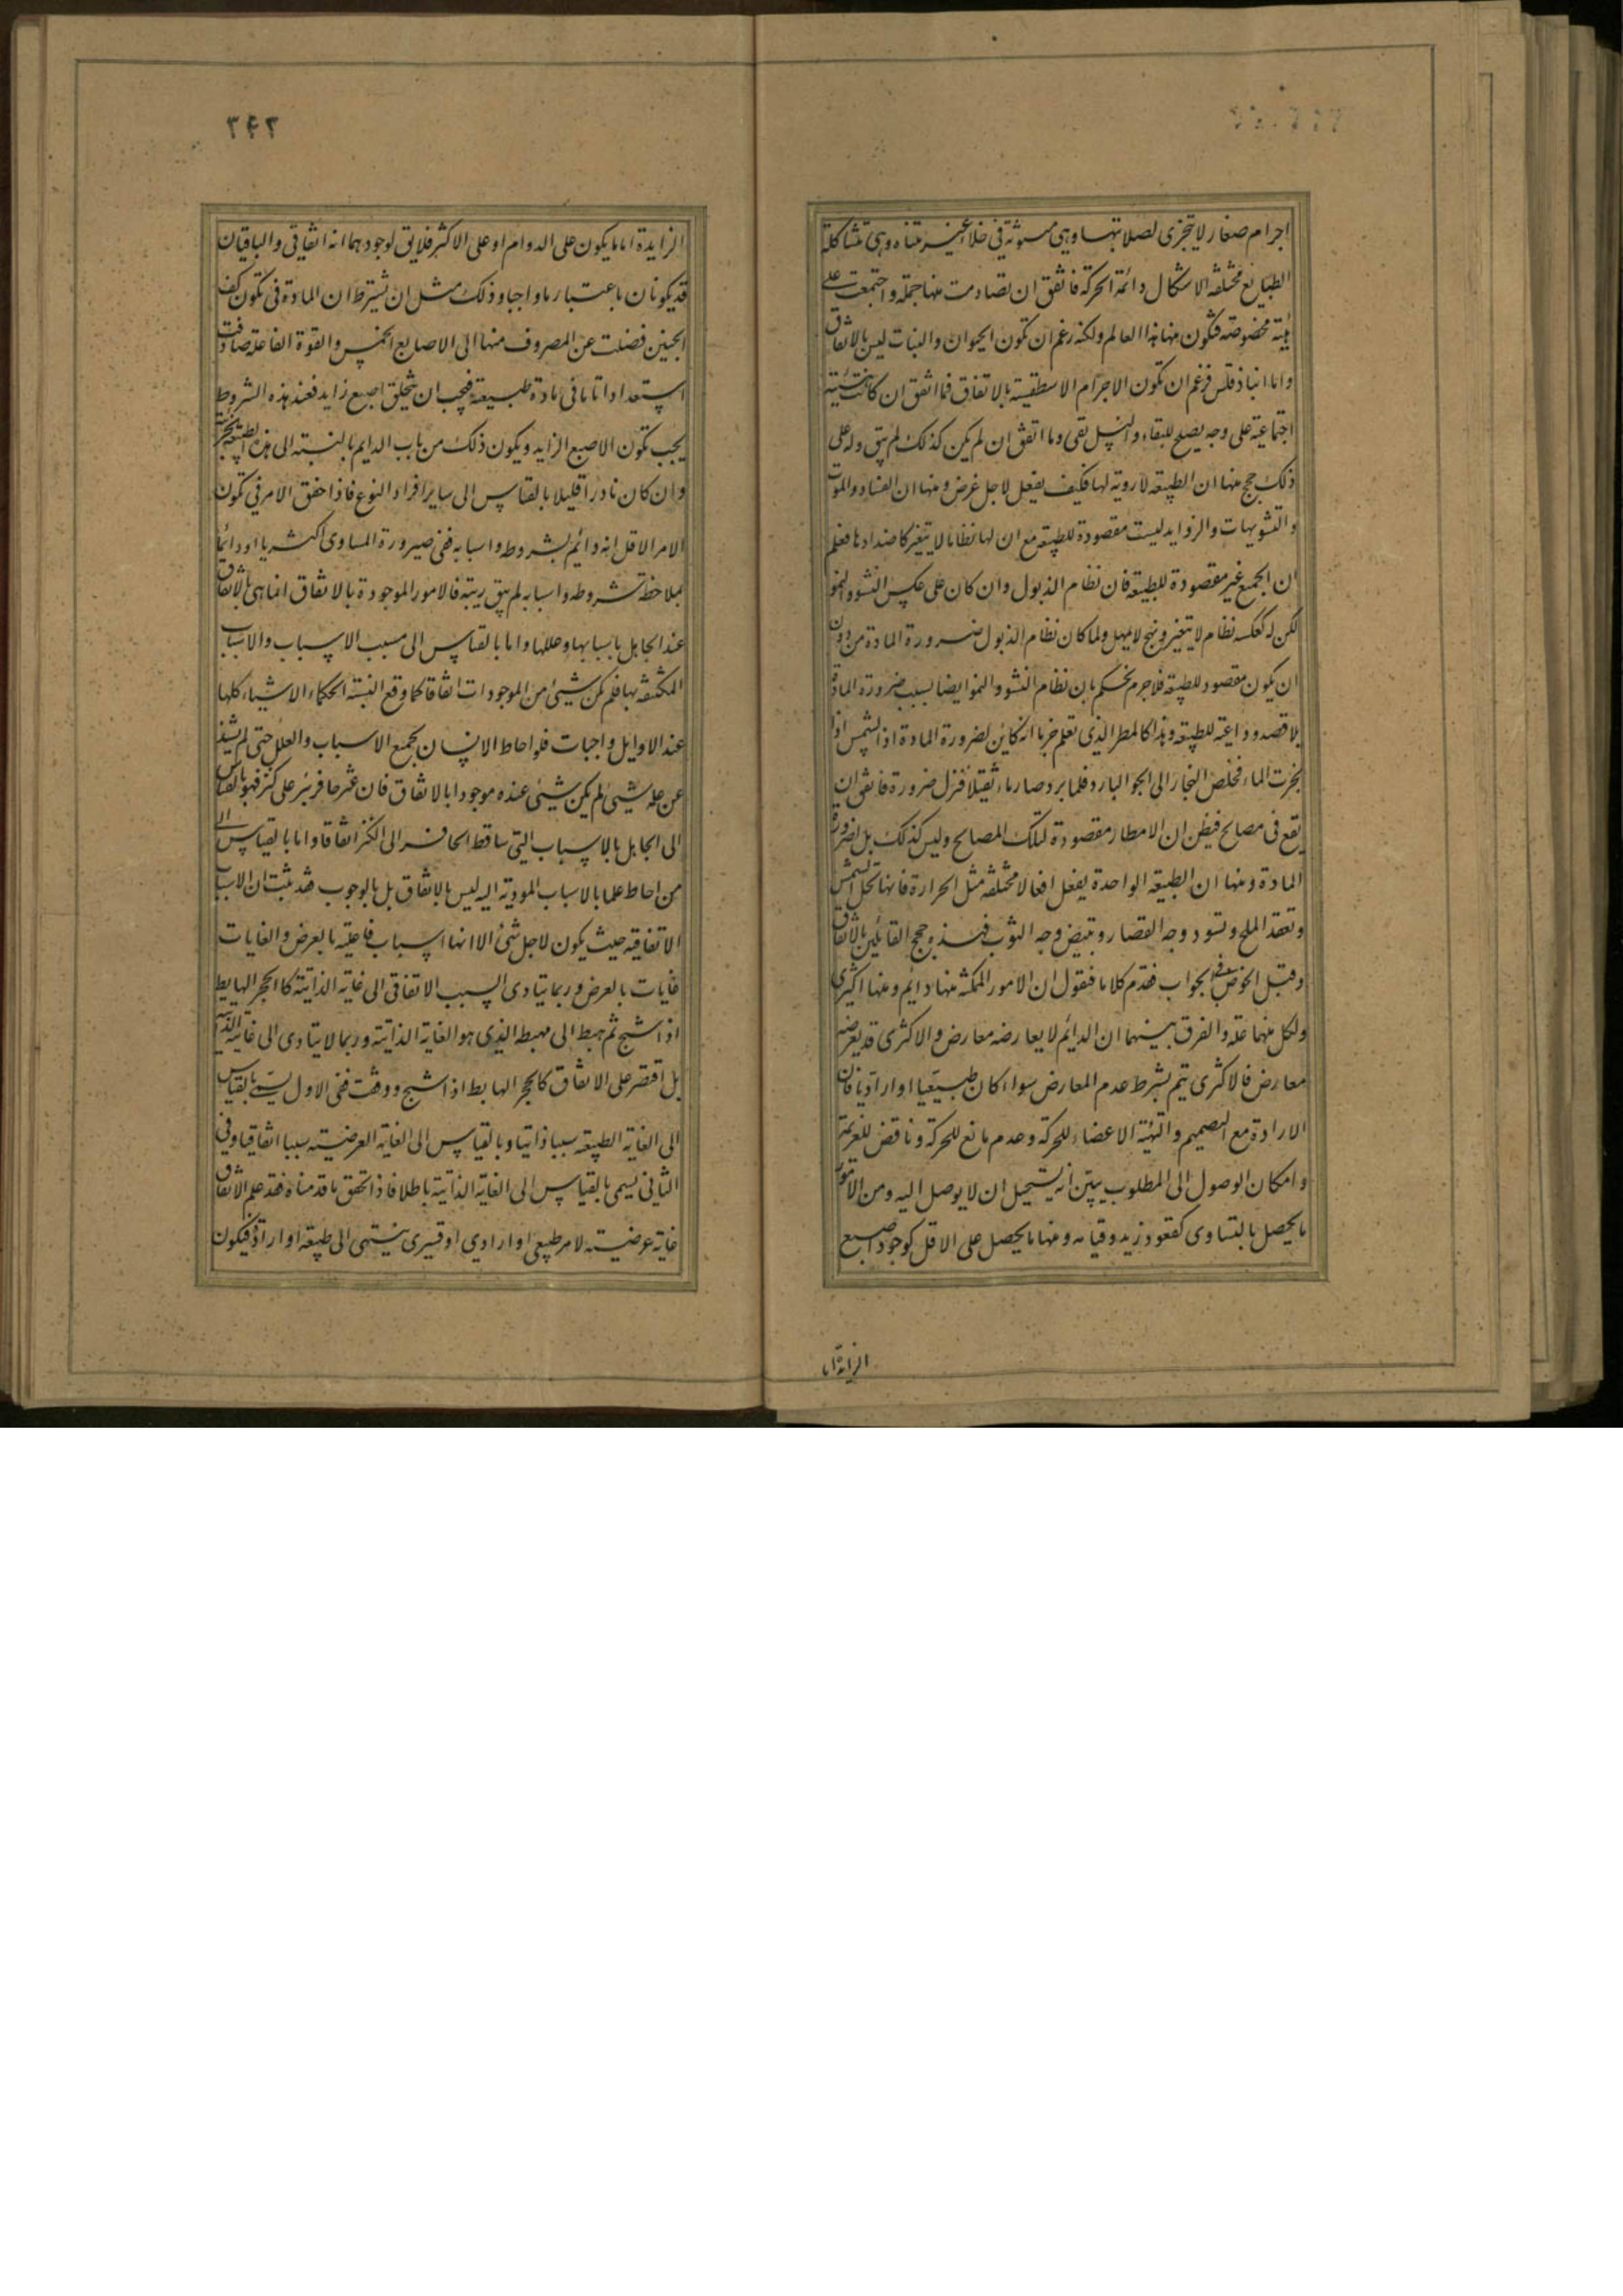 اجرام صغار لا تتجزى لصلابتها وهى مبثوثة فى خلاء غير متناه وهى متشاكلة
الطبايع مختلفه الاشكال دائمة الحركة فاتفق ان تصادمت منها جملة واجتمعت على
هيئة مخصوصة فتكون منها هذا العالم ولكنه زعم ان تكون الحيوان والنبات ليس بالاتفاق
واما انباذ قلس فزعم ان تكون الاجرام الاسطقسية بالاتفاق فما اتفق ان كانت هيئته
اجتماعية على وجه يصلح للبقاء والنسل بقى وما اتفق ان لم يكن كذلك لم يبق وله على
ذلك حجج منها ان الطبيعة لا روية لها فكيف يفعل لاجل غرض ومنها ان الفساد والموت
والتشويهات والزوايد ليست مقصودة للطبيعة مع ان لها نظاما لا يتغير كاضدادها فعلم
ان الجميع غير مقصودة للطبيعة فان نظام الذبول وان كان على عكس النشو والنمو
لكن له كعكسه نظام لا يتغير ونهج لا يمهل ولما كان نظام الذبول ضرورة المادة من دون
ان يكون مقصود للطبيعة فلا جرم نحكم بان نظام النشو والنمو ايضا بسبب ضرورة المادة
بلا قصد وداعية للطبيعة وهذا كالمطر الذى تعلم جزما انه كاين لضرورة المادة اذ الشمس اذا
بخرت الماء فخلص البخار الى الجو البارد فلما برد صار ماء ثقيلا فنزل ضرورة فاتفق ان
يقع فى مصالح فيظن ان الامطار مقصودة لتلك المصالح وليس كذلك بل لضرورة
المادة ومنها ان الطبيعة الواحدة يفعل افعالا مختلفه مثل الحرارة فانها تحل الشمع
وتعقد الملح وتسود وجه القصار وتبيض وجه الثوب فهذه حجج القائلين بالاتفاق
وقبل الخوض فى الجواب نقدم كلاما فنقول ان الامور الممكنة منها دائم ومنها اكثرى
ولكل منهما علة والفرق بينهما ان الدايم لا يعارضه معارض والاكثرى قد يعارضه
معارض فالاكثرى يتم بشرط عدم المعارض سواء كان طبيعيا او اراديا فان
الارادة مع التصميم والتهيئة الاعضاء للحركة وعدم مانع للحركة وناقض للعزيمة
وامكان الوصول الى المطلوب يبين انه يستحيل ان لا يوصل اليه ومن الامور
ما يحصل بالتساوى كقعود زيد وقيامه ومنها ما يحصل على الاقل كوجود اصبع
الزايدة اما
٣٤٢
الزايدة اما ما يكون على الدوام او على الاكثر فلا يق لوجودهما انه اتفاقى والباقيان
قد يكونان باعتبار ما واجبا وذلك مثل ان تشترط ان المادة فى تكون كف
الجنين فضلت عن المصروف منها الى الاصابع الخمس والقوة الفاعلة صادفت
استعدادا تاما فى مادة طبيعية فيجب ان يتخلق اصبع زايد فعند هذه الشروط
يجب تكون الاصبع الزايد ويكون ذلك من باب الدايم بالنسبة الى هذه الطبيعة الجزئية
وان كان نادرا قليلا بالقياس الى ساير افراد النوع فاذا حقق الامر فى تكون
الامر الاقل انه دائم بشروطه واسبابه ففى صيرورة المساوى اكثريا او دائما
بملاحظة شروطه واسبابه لم يبق ريبة فالامور الموجودة بالاتفاق انما هى بالاتفاق
عند الجاهل باسبابها وعللها واما بالقياس الى مسبب الاسباب والاسباب
المكتنفة بها فلم يكن شيئ من الموجودات اتفاقا كما وقع السنة الحكماء الاشياء كلها
عند الاوايل واجبات فلو احاط الانسان بجميع الاسباب والعلل حتى لم يشذ
عن علمه شيئ لم يكن شيئ عنده موجودا بالاتفاق فان عثر حافر بئر على كنز فهو بالقياس
الى الجاهل بالاسباب التى ساقط الحافر الى الكنز اتفاقا واما بالقياس الى
من احاط علما بالاسباب المودية اليه ليس بالاتفاق بل بالوجوب فقد ثبت ان الاسباب
الاتفاقية حيث يكون لاجل شئ الا انها اسباب فاعلية بالعرض والغايات
غايات بالعرض وربما يتادى السبب الاتفاقى الى غاية الذاتية كالحجر الهابط
اذا شج ثم هبط الى مهبط الذى هو الغاية الذاتية وربما لا يتادى الى غايته الذاتية
بل اقتصر على الاتفاق كالحجر الهابط اذا شج ووقف ففى الاول يسمى بالقياس
الى الغاية الطبيعة سببا ذاتيا وبالقياس الى الغاية العرضية سببا اتفاقيا وفى
الثانى يسمى بالقياس الى الغاية الذاتية باطلا فاذا تحقق ما قدمناه فقد علم الاتفاق
غاية عرضية لامر طبيعى او ارادى او قسرى ينتهى الى طبيعة او ارادة فيكون